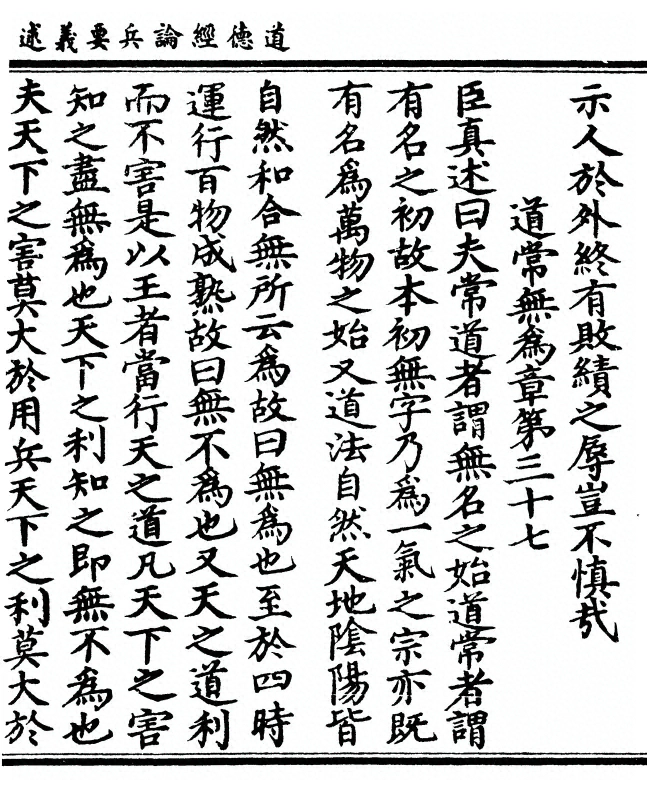 道德經論兵要義述
示人於外終有敗績之辱豈不慎哉
道常無為章第三十七
臣真述曰夫常道者謂無名之始道常者謂
有名之初故本初無字乃為一氣之宗亦既
有名爲萬物之始又道法自然天地陰陽皆
自然和合無所云爲故曰無爲也至於四時
運行百物成熟故曰無不為也又天之道利
而不害是以王者當行天之道凡天下之害
知之盡無爲也天下之利知之即無不為也
夫天下之害莫大於用兵天下之利莫大於